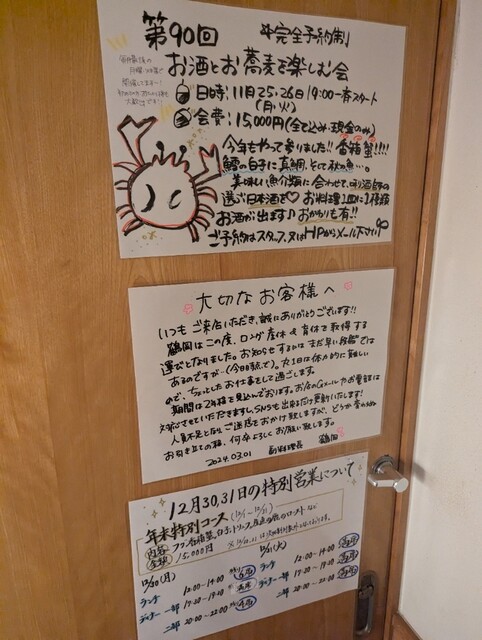 第90回 ※完全予約制
お酒とお蕎麦を楽しむ会
日時:11月25・26日 19:00一斉スタート
(月・火)
会費:15,000円(全て込み・現金のみ)
今年もやって参りました!! 香箱蟹!!!!
鱈の白子に真鯛、そして秋の魚…。
美味しい魚介類に合わせて、唎酒師の
選ぶ日本酒を♡ お料理1皿に1種類
お酒が出ます♪ おかわりも有!!
ご予約はスタッフ、又はHPからメール下さい!
大切なお客様へ
いつもご来店いただき、誠にありがとうございます!!
鶴岡はこの度、ロング産休&育休を取得する
運びとなりました。お知らせするにはまだ早い段階では
あるのですが…(今日時点で)。丸1日は体力的に難しい
ので、ちょっとしたお仕事をして過ごします。
期間は2年程を見込んでおります。お店のGメールやお電話は
対応させていただきますし、SNSも出来るだけ更新いたします!
人員不足となり、ご迷惑をおかけ致しますが、どうか変わらぬ
お引き立ての程、何卒よろしくお願い致します。
2024.03.01 副料理長 鶴岡
12月30,31日の特別営業について
年末特別コース
内容
会費 15,000円
12/30(月) 12/31(火)
ランチ 12:00~14:00 ランチ 12:00~14:00
ディナー 一部 17:30~19:30 ディナー 一部 17:30~
二部 20:00~22:00 二部 20:00~22:00